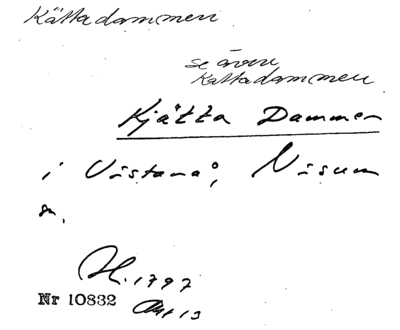 Kättadammen
se även
Kattadammen
Kjätta Dammen
i Vistanå, Nisum
sn.
H. 1797
Nr 10832 Akt 13